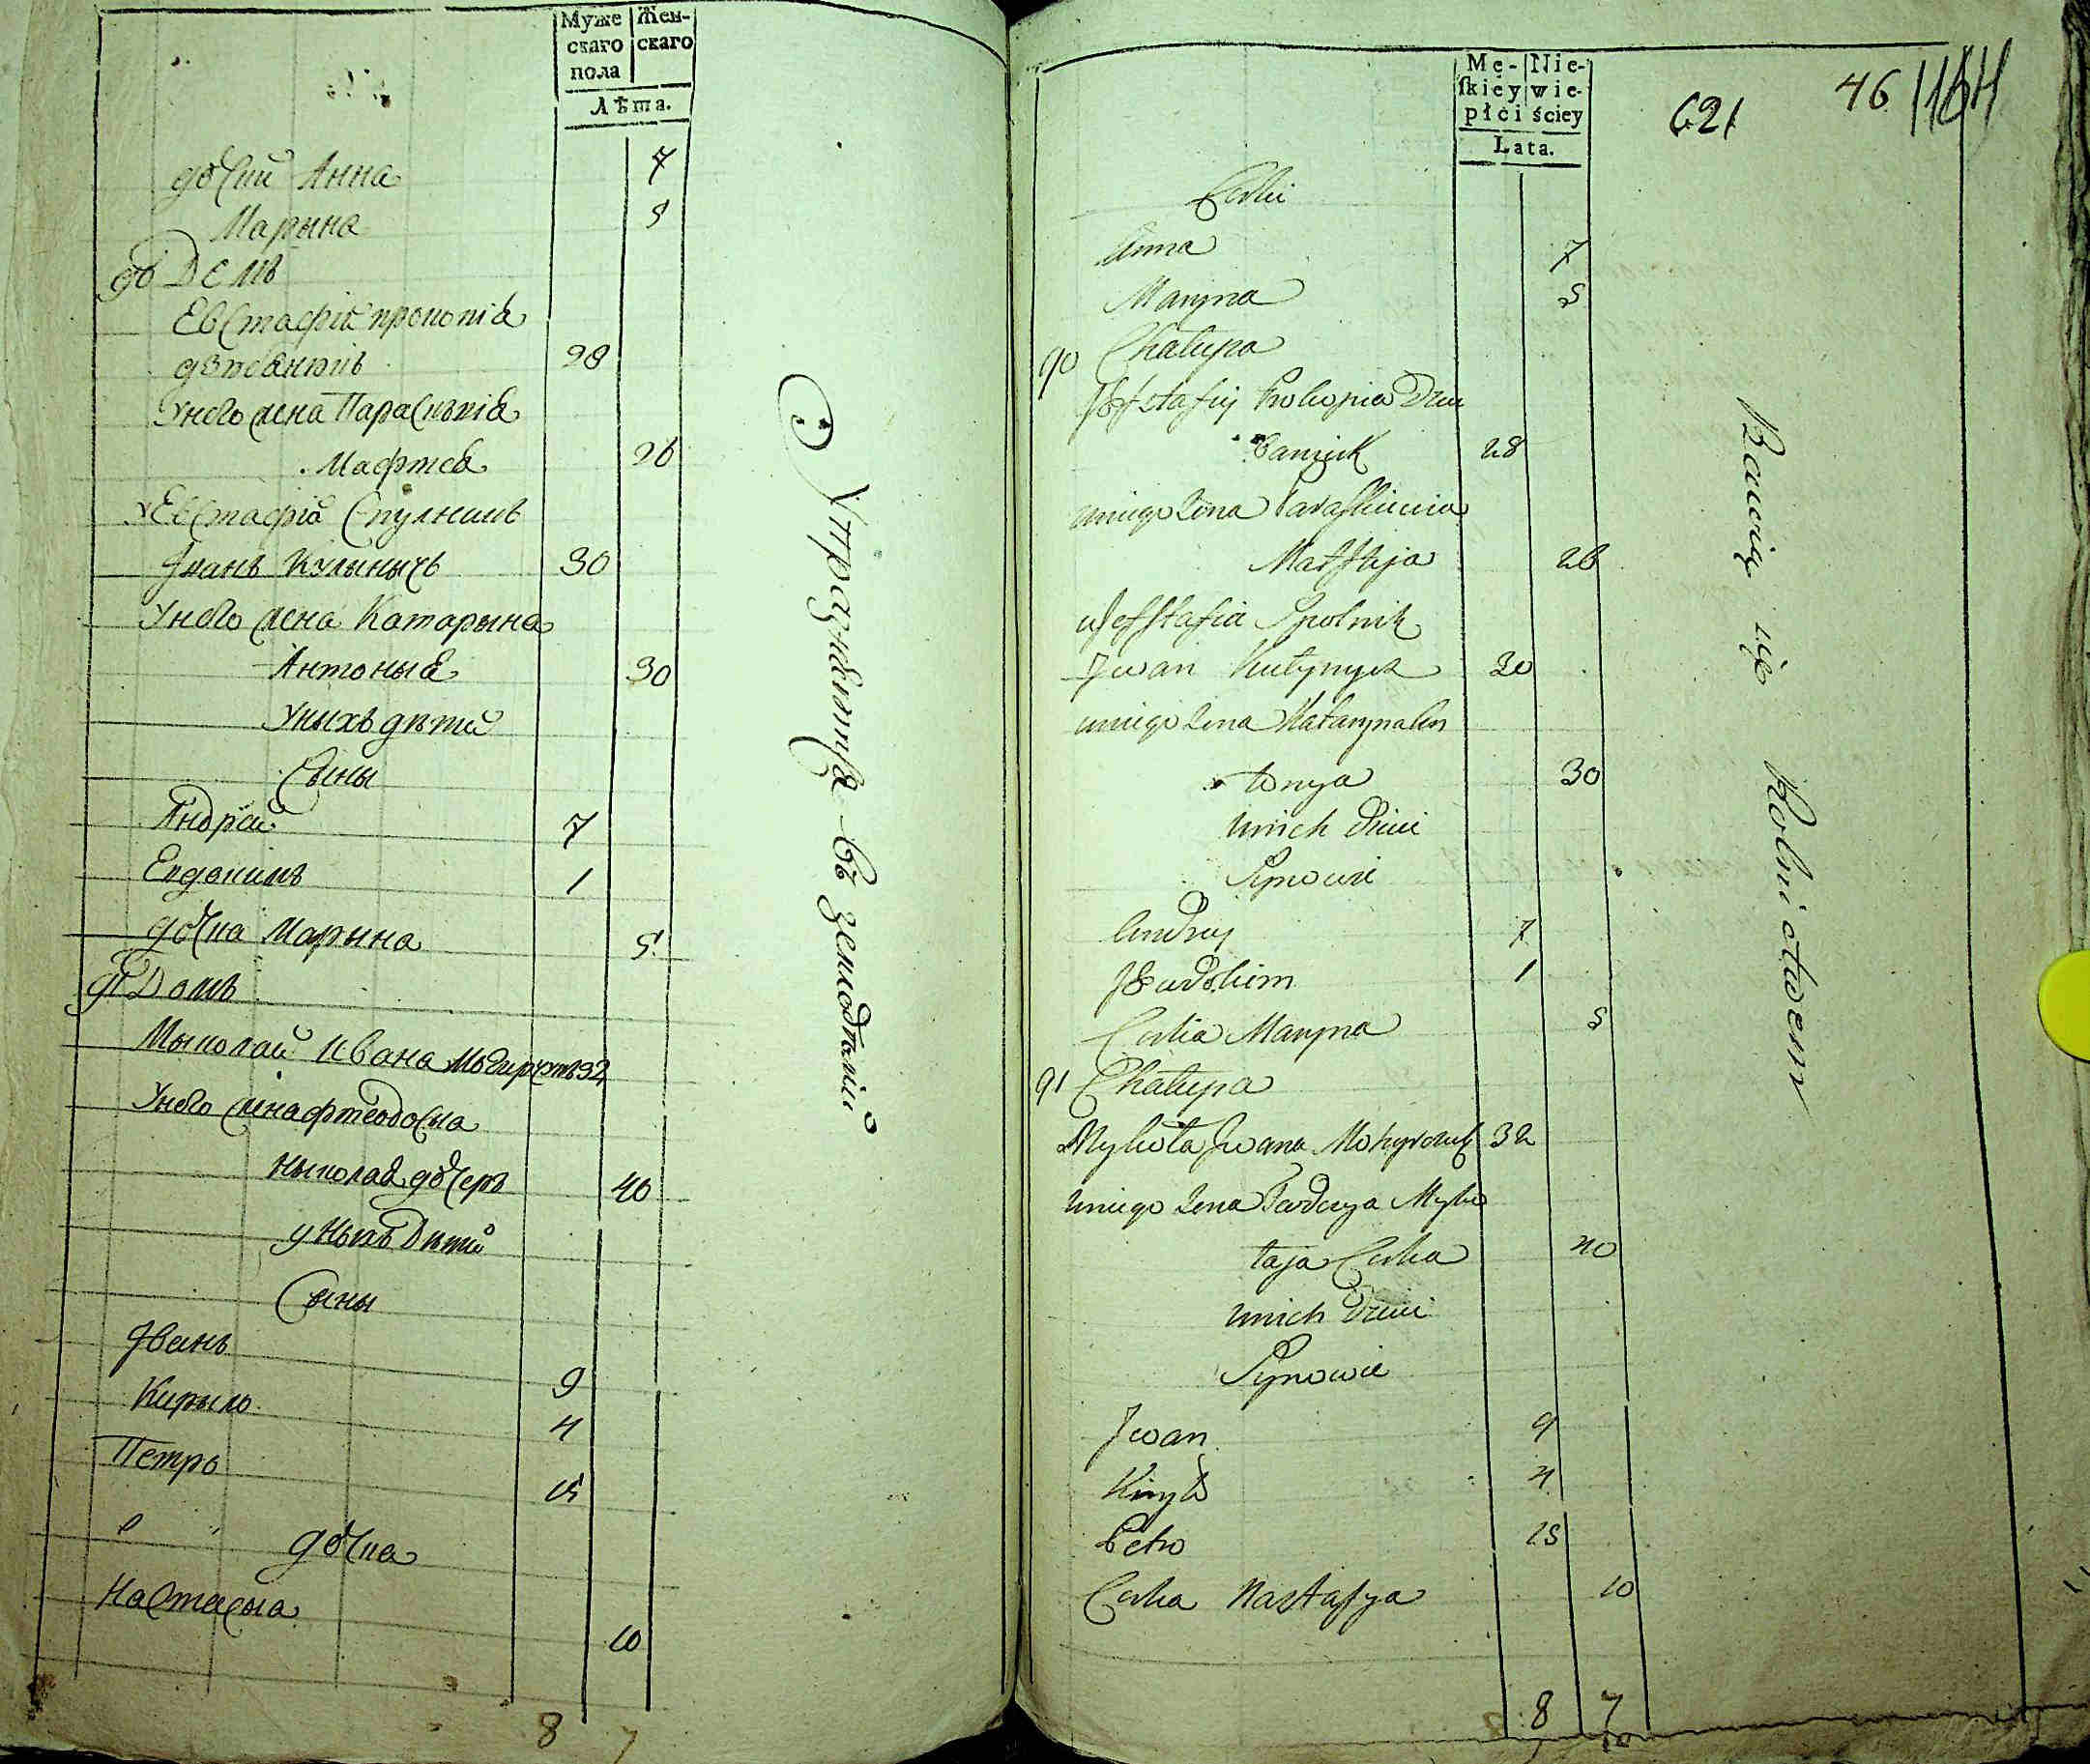 Муже
скаго
пола
Жен-
скаго
Лѣта.
дочки Анна 7
Марына 5
Домъ
Евстафій прокопіа
28
Унего жена Параскъвіа
Мафтеа 26
УЕвстафіа Спулникъ
Іванъ Кулынычъ 30
Унего жена Катарына
Антоныа 30
Уныхъ дѣтей
Сыны
Андрей 7
Евдокимъ 1
дочка Марына 5
Домъ
Мыколай Ивана 32
Унего жена фтеодосыа
Ныколаа дочеръ 40
уныхъ Дѣтей
Сыны
Іванъ 9
Кирыло 4
Петро 15
дочка
Настасыа 10
8 7
Упражняются въ земледѣліи
Mę-
skiey
płci
Nie-
wie-
ściey
Lata.
621
46
Corki
Anna 7
Maryna 5
90 Chałupa
Jefstafiy Prokopia Dzie
baniuk 28
uniego Zona Paraskiewia
Maftyja 26
u Jefstafia Spolnik
Jwan Kułynycz 30
uniego Zona Katarynа An
tonya 30
unich Dzieci
Synowie
Andrey 7
Jewdokim 1
Corka Maryna 5
91 Chałupa
Mykoła Jwana 32
uniego Zona Teodozya Myko
łaja Corka 40
unich Dzieci
Synowie
Jwan 9
Kiryło 4
Petro 15
Corka Nastasya 10
8 7
Bawią się Rolnictwem